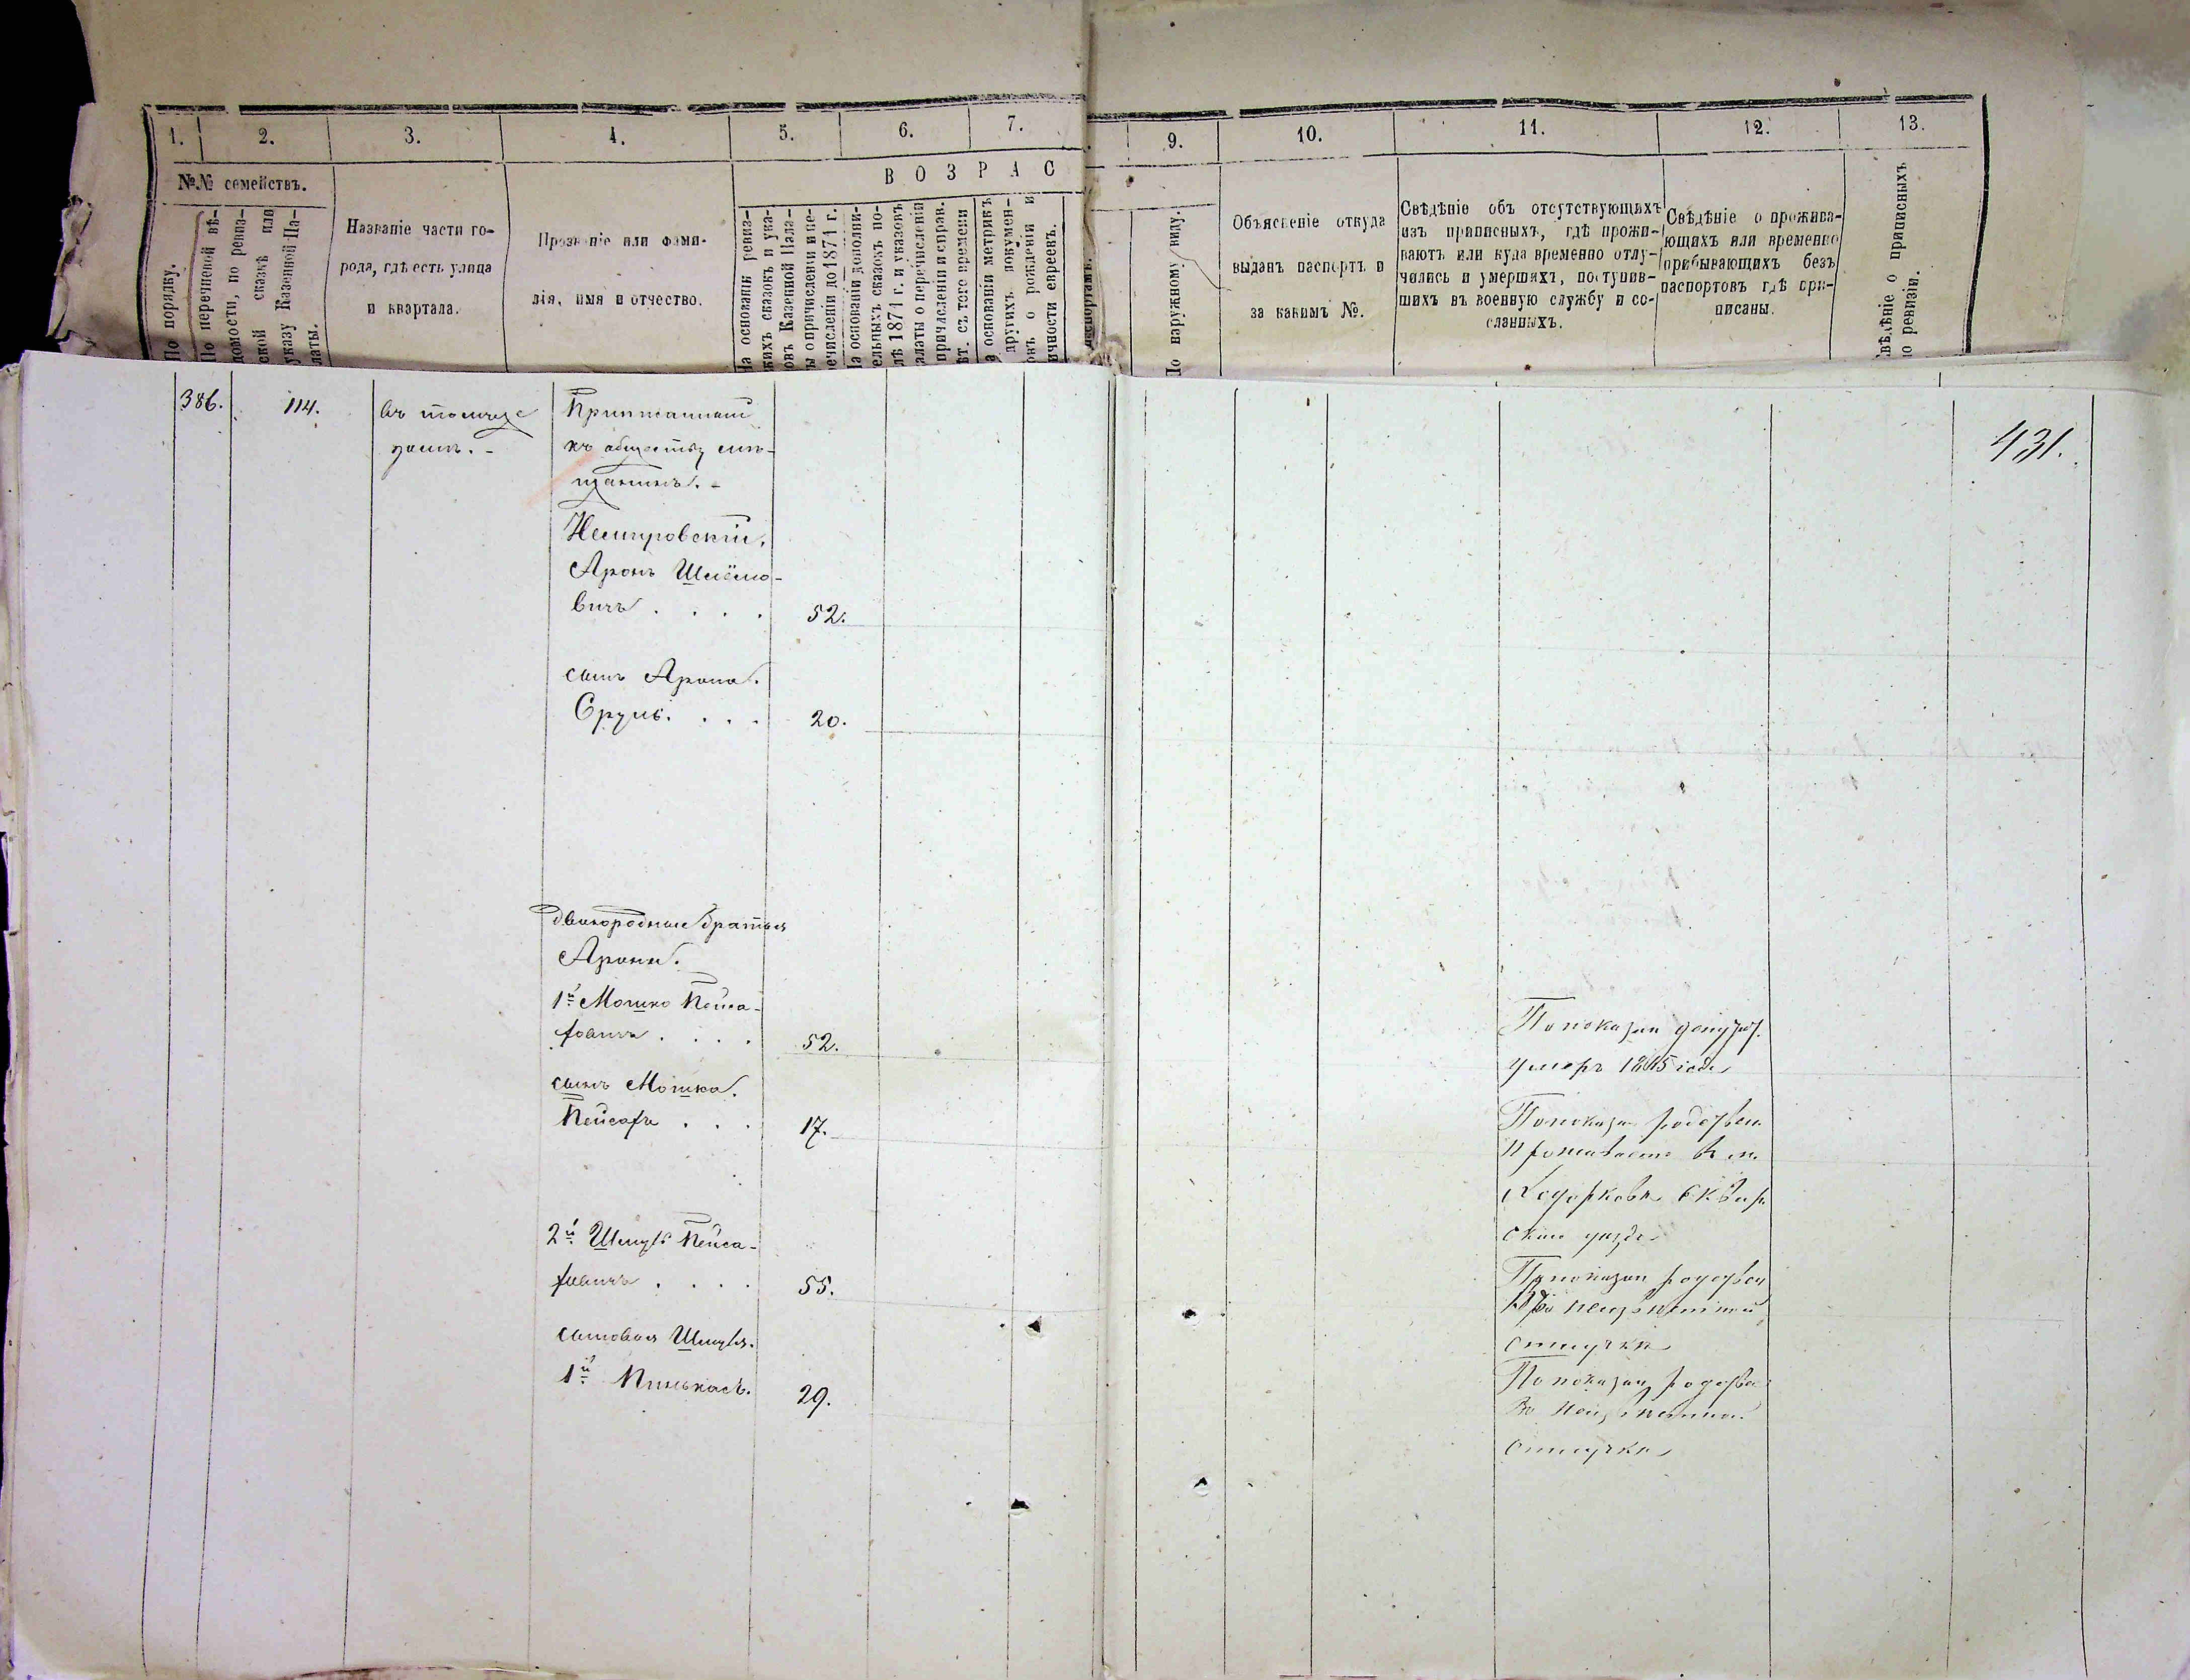 1. 2. 3. 4. 5. 6. 7. 9. 10. 11. 12. 13.
№№ семействъ.
В О З Р А С
По порядку.
По перечневой вѣ-
домости, по ревиз-
ской сказкѣ или
указу Казенной Па-
латы.
Названіе части го-
рода, гдѣ есть улица
и квартала.
Прозваніе или фами-
лія, имя и отчество.
На основаніи ревиз-
скихъ сказокъ и ука-
зовъ Казенной Пала-
ты о причисленіи и пе-
речисленіи до 1871 г.
На основаніи дополни-
тельныхъ сказокъ по-
слѣ 1871 г. и указовъ
палаты о перечисленіи
причисленіи и справ.
лѣт. съ того времени
на основаніи метрикъ
другихъ докумен-
овъ о рожденіи и
личности евреевъ.
По наружному виду.
Объясненіе откуда
выданъ паспортъ и
за какимъ №.
Свѣдѣніе объ отсутствующихъ
изъ приписныхъ, гдѣ прожи-
ваютъ или куда временно отлу-
чились и умершихъ, поступив-
шихъ въ военную службу и со-
сланныхъ.
Свѣдѣніе о прожива-
ющихъ или временно
прибывающихъ безъ
паспортовъ гдѣ при-
писаны.
вѣдѣніе о приписныхъ
по ревизіи.
386. 114.
431.
къ обществу мѣ-
щанинъ.
Немировскій,
Аронъ Шлёмо-
вичъ . . . . 52.
сынъ Арона.
Сруль. . . . 20.
двоюродные братья
Арона.
1й Мошко Пейса-
ховичъ . . . . 52.
сынъ Мошка.
Пейсахъ . . . 17.
2й Шмуль Пейса-
ховичъ . . . . 55.
сыновья Шмуля.
1й Пинькасъ. 29.
По показан
умеръ 1865 года
По показан родствен
проживаетъ в м.
Ходорковѣ Сквир
ском уезде
По показан родствен
в неизвестной
отлучке
По показан родствен
в неизвестной
отлучке